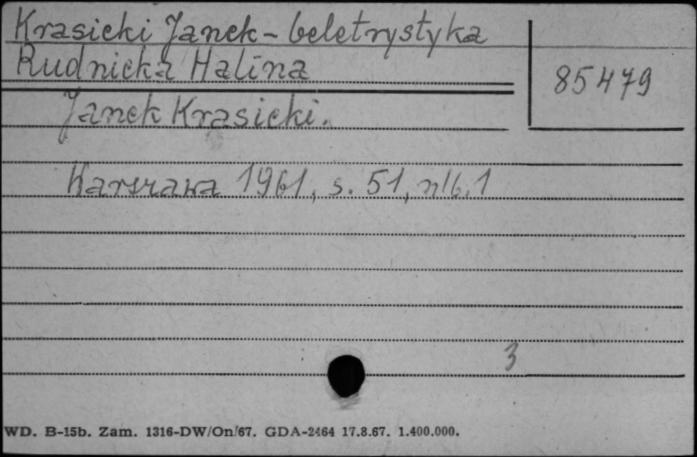 Krasicki Janek - beletrystyka
Rudnicka Halina
85479
Janek Krasicki.
Warszawa 1961, s. 51, nlb. 1
3
WD. B-15b. Zam. 1316-DW/On/67. GDA-2464 17.8.67. 1.400.000.